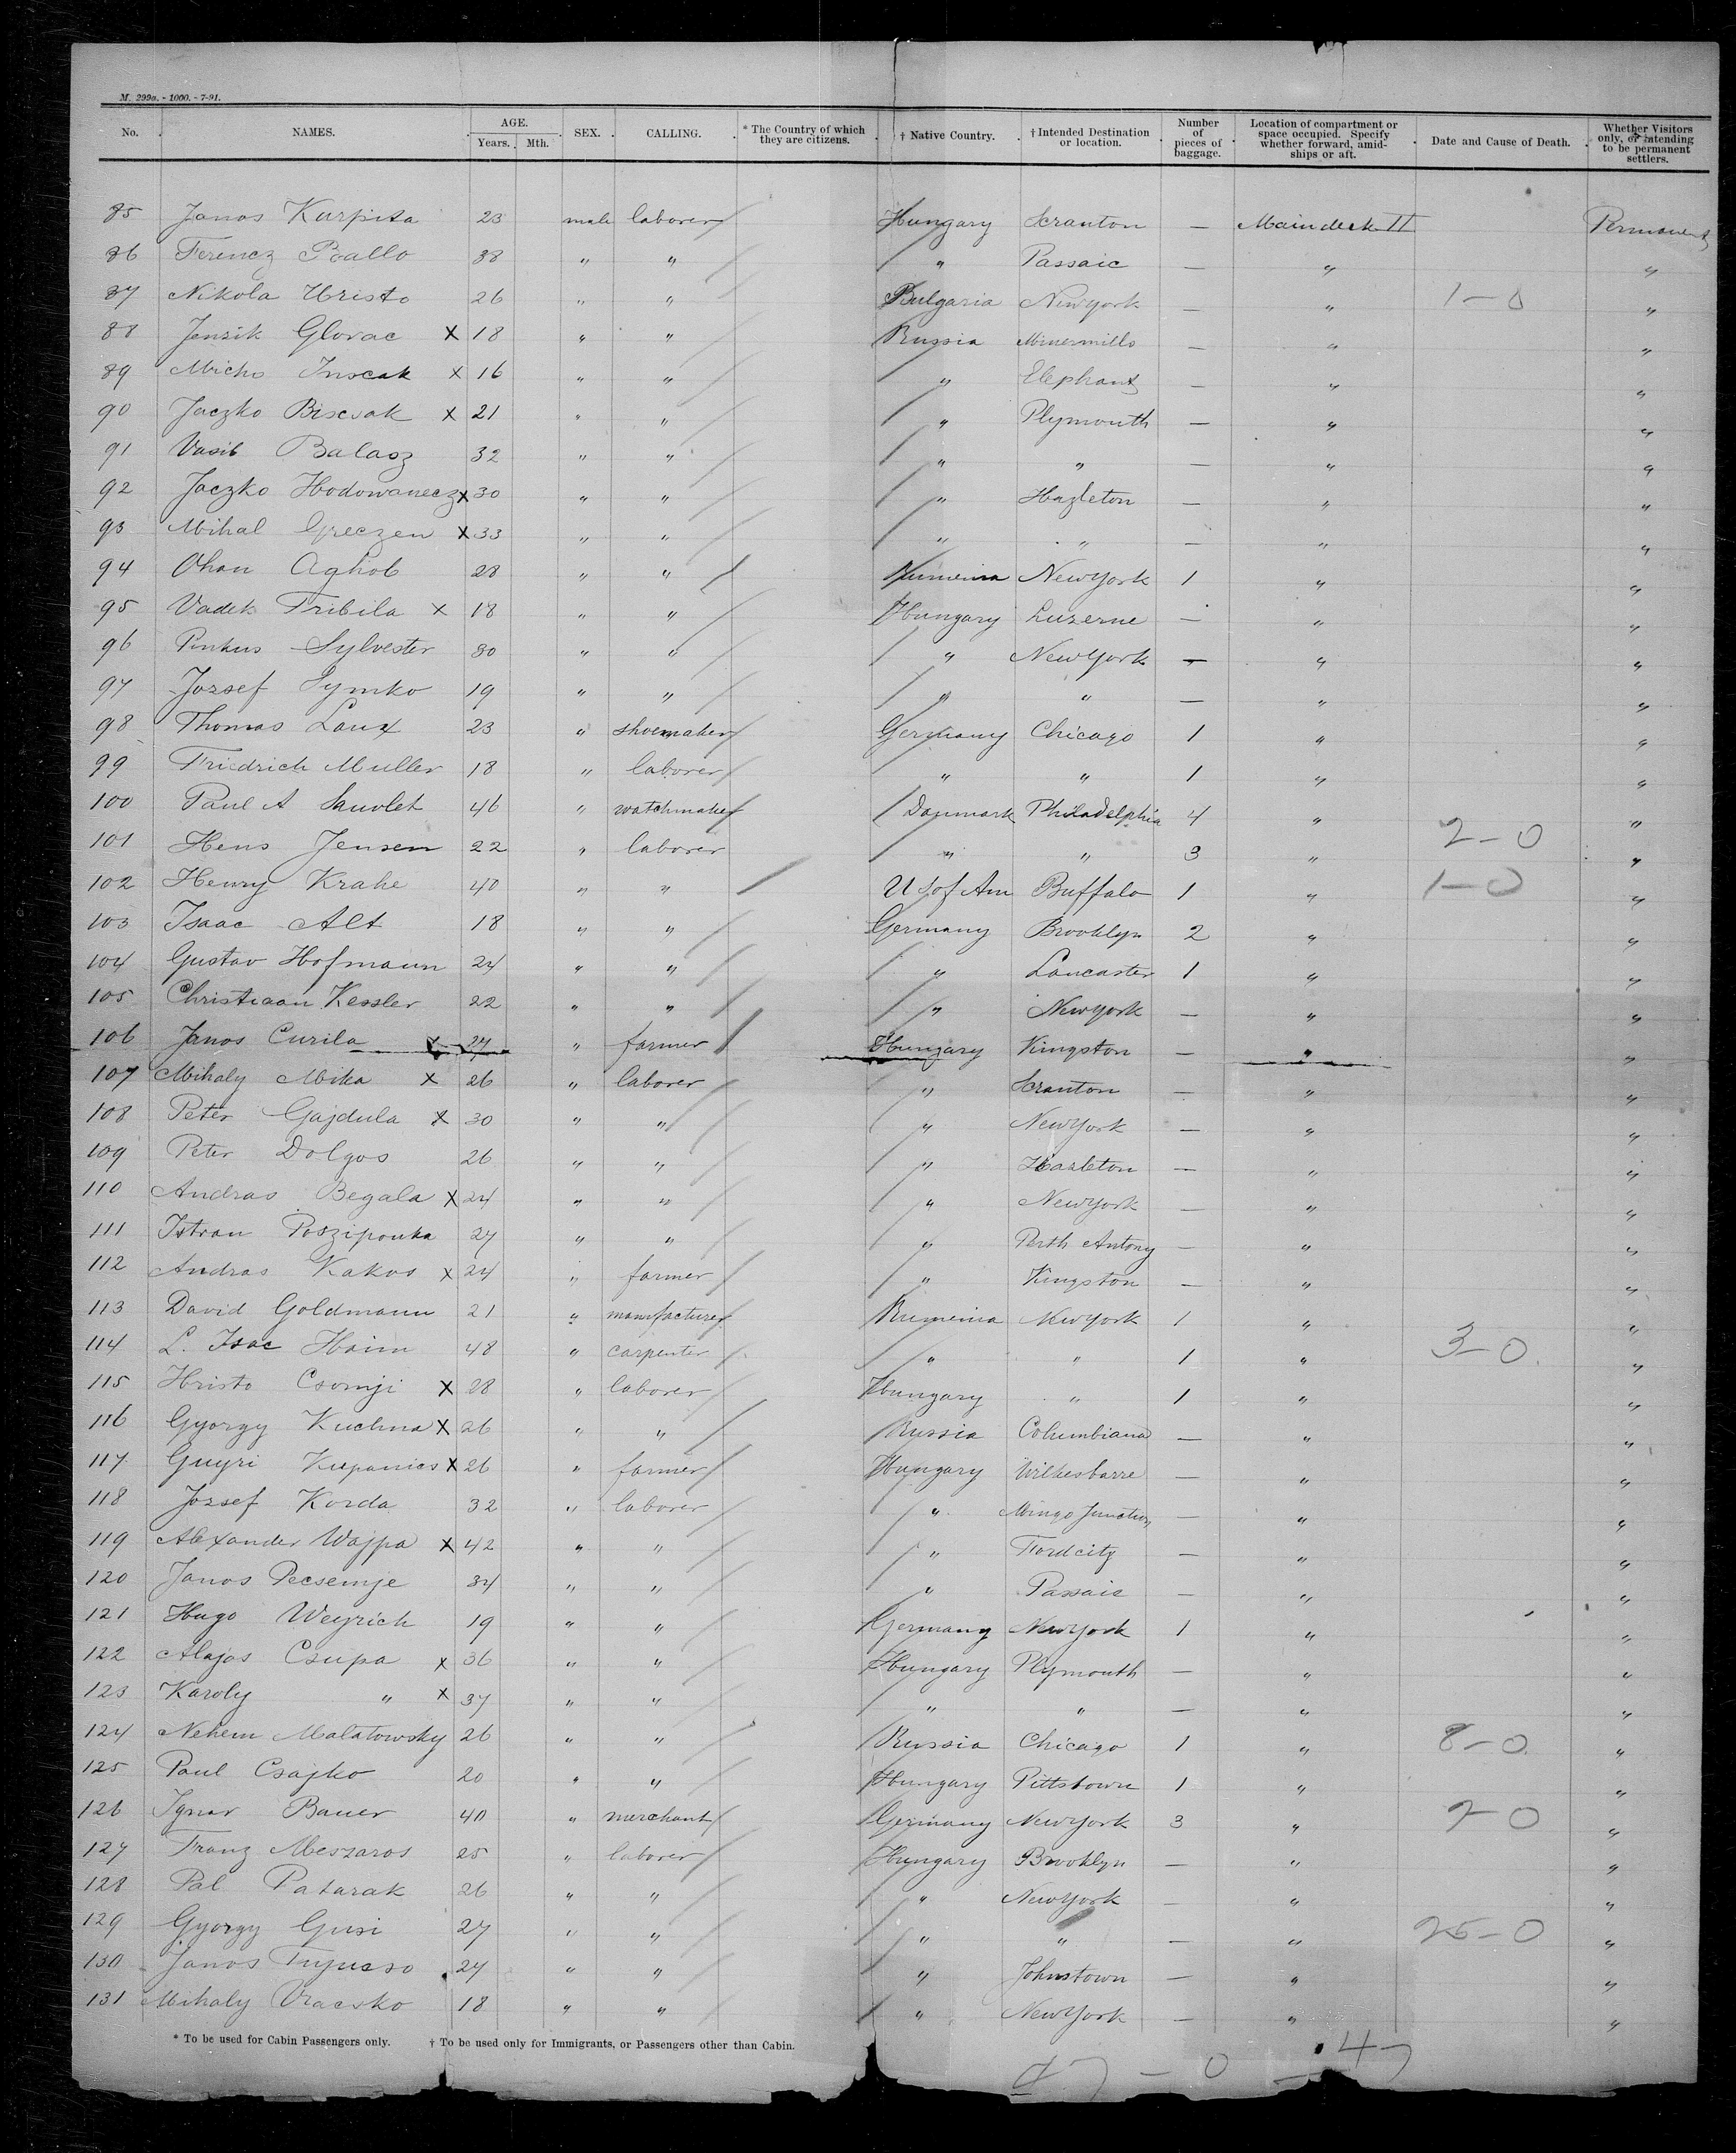 M. 299a. - 1000. - 7-91.
No. NAMES. AGE. Years. Mth. SEX. CALLING. * The Country of which they are citizens. † Native Country. † Intended Destination or location. Number of pieces of baggage. Location of compartment or space occupied. Specify whether forward, amidships or aft. Date and Cause of Death. Whether Visitors only, or intending to be permanent settlers.
85 Janos Karpita 23 male laborer Hungary Scranton — Maindeck II Permanent
86 Ferencz Ballo 38 " " " Passaic — " "
87 Nikola Hristo 26 " " Bulgaria New York — " 1-0 "
88 Jensik Glovac X 18 " " Russia Minersmills — " "
89 Micho Inscak X 16 " " " Elephant — " "
90 Jaczko Biscsak X 21 " " " Plymouth — " "
91 Vasib Balasz 32 " " " " — " "
92 Jaczko Hodowanecz X 30 " " " Hazleton — " "
93 Mihal Greczen X 33 " " " " — " "
94 Ohan Aghob 28 " " Rumenia New York 1 " "
95 Vadek Tribila X 18 " " Hungary Luzerne — " "
96 Pinkus Sylvester 30 " " " New York — " "
97 Jozsef Symko 19 " " " " — " "
98 Thomas Laux 23 " shoemaker Germany Chicago 1 " "
99 Friedrich Muller 18 " laborer " " 1 " "
100 Paul A 46 " watchmaker Danmark Philadelphia 4 " "
101 Hens Jensen 22 " laborer " " 3 " 2-0 "
102 Henry Krahe 40 " " U S of Am Buffalo 1 " 1-0 "
103 Isaac Alt 18 " " Germany Brooklyn 2 " "
104 Gustav Hofmann 24 " " " Lancaster 1 " "
105 Christiaan Kessler 22 " " " New York — " "
106 Janos Curila X 27 " farmer Hungary Kingston — " "
107 Mihaly Mika X 26 " laborer " Scranton — " "
108 Peter Gajdula X 30 " " " New York — " "
109 Peter Dolgos 26 " " " Hazleton — " "
110 Andras Begala X 24 " " " New York — " "
111 Istvan Poszipouka 27 " " " Perth Antony — " "
112 Andras Kakos X 24 " farmer " Kingston — " "
113 David Goldmann 21 " manufacturer Rumenia New York 1 " "
114 L. Isac Haim 48 " carpenter " " 1 " 3-0 "
115 Hristo Csomji X 28 " laborer Hungary " 1 " "
116 Gyorgy Kuchna X 26 " " Russia Columbiana — " "
117 Guyri Kupanics X 26 " farmer Hungary Wilkesbarre — " "
118 Jozsef Korda 32 " laborer " Mingo Junction — " "
119 Alexander Wajpa X 42 " " " Fordcity — " "
120 Janos Pecsemje 34 " " " Passaic — " "
121 Hugo Weyrich 19 " " Germany New York 1 " "
122 Alajos Csupa X 36 " " Hungary Plymouth — " "
123 Karoly " X 37 " " " " — " "
124 Nehem Malatowsky 26 " " Russia Chicago 1 " 8-0 "
125 Paul Csajko 20 " " Hungary Pittstown 1 " "
126 Ignar Bauer 40 " merchant Germany New York 3 " 7-0 "
127 Franz Meszaros 25 " laborer Hungary Brooklyn — " "
128 Pal Patarak 26 " " " New York — " "
129 Gyorgy Gusi 27 " " " " — " 25-0 "
130 Janos 24 " " " Johnstown — " "
131 Mihaly Vracsko 18 " " " New York — " "
* To be used for Cabin Passengers only. † To be used only for Immigrants, or Passengers other than Cabin.
47 - 0 - 47